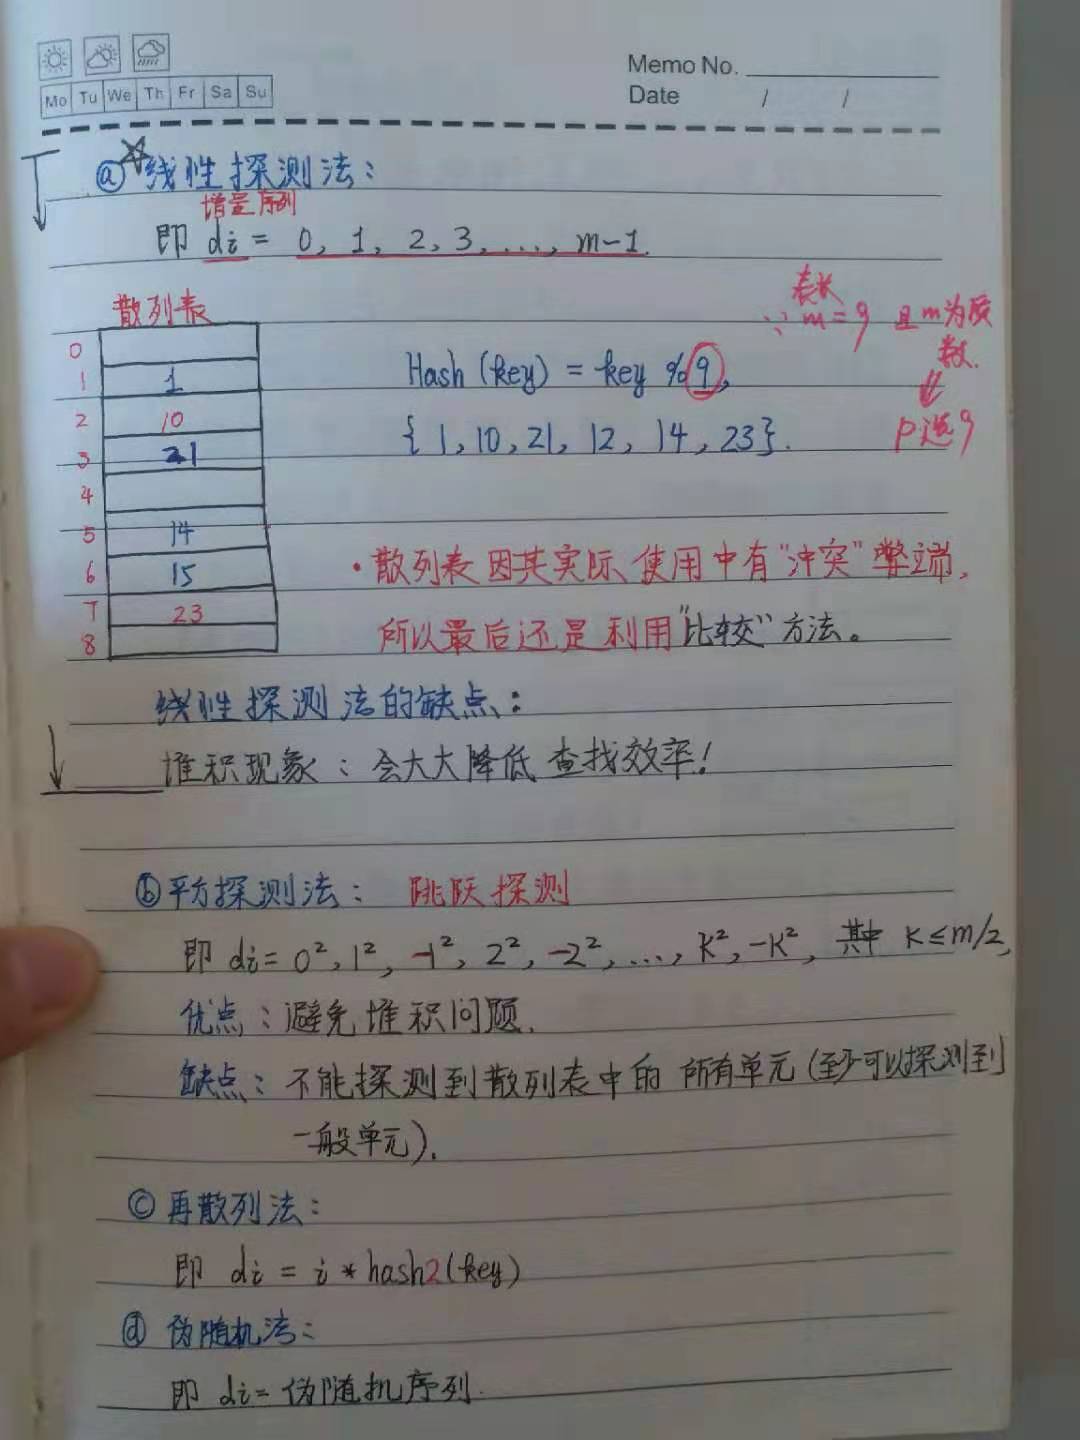 Memo No.
Mo Tu We Th Fr Sa Su
Date / /
ⓐ☆线性探测法:
增量序列
即 di = 0, 1, 2, 3, ..., m-1.
散列表
表长
∵ m=9 且m为质
数.
⇓
p选9
0
1 1
2 10
3 21
4
5 14
6 15
7 23
8
Hash (key) = key % 9,
{1, 10, 21, 12, 14, 23}.
·散列表因其实际使用中有"冲突"弊端,
所以最后还是利用"比较"方法。
线性探测法的缺点:
堆积现象: 会大大降低查找效率!
ⓑ平方探测法: 跳跃探测
即 di = 0², 1², -1², 2², -2², ..., k², -k², 其中 k≤m/2,
优点: 避免堆积问题.
缺点: 不能探测到散列表中的所有单元(至少可以探测到
一般单元).
ⓒ再散列法:
即 di = i * hash2(key)
ⓓ伪随机法:
即 di = 伪随机序列.